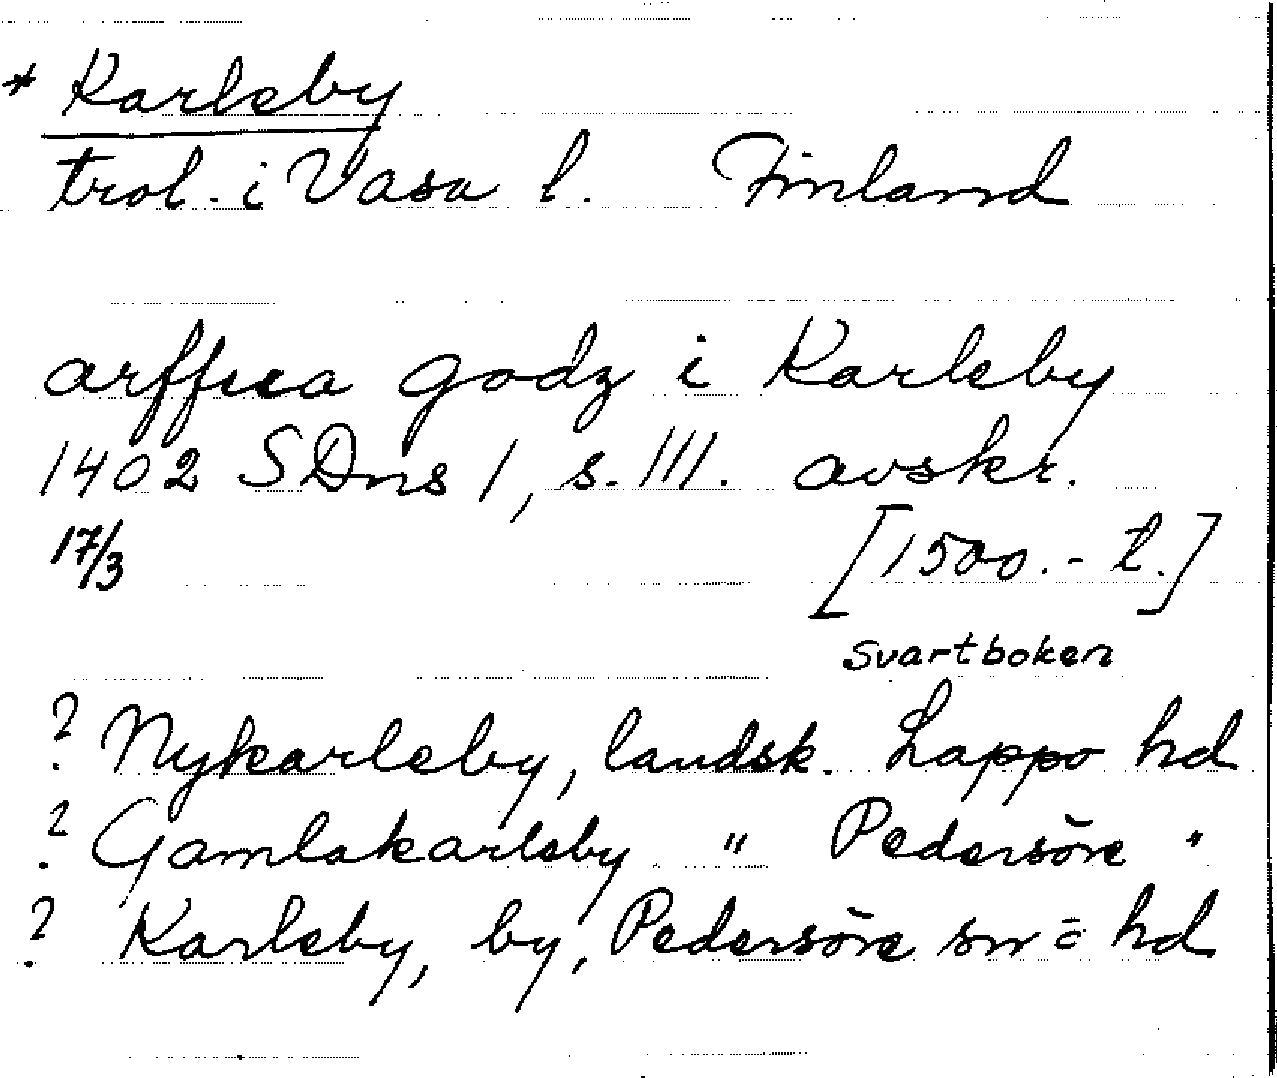 * Karleby
trol. i Vasa l. Finland
arffua godz i Karleby
1402 SDns 1, s. 111. avskr.
17/3 [1500.- t.]
svartboken
? Nykarleby, landsk. Lappo hd
? Gamlakarleby " Pedersöre "
? Karleby, by, Pedersöre sn = hd